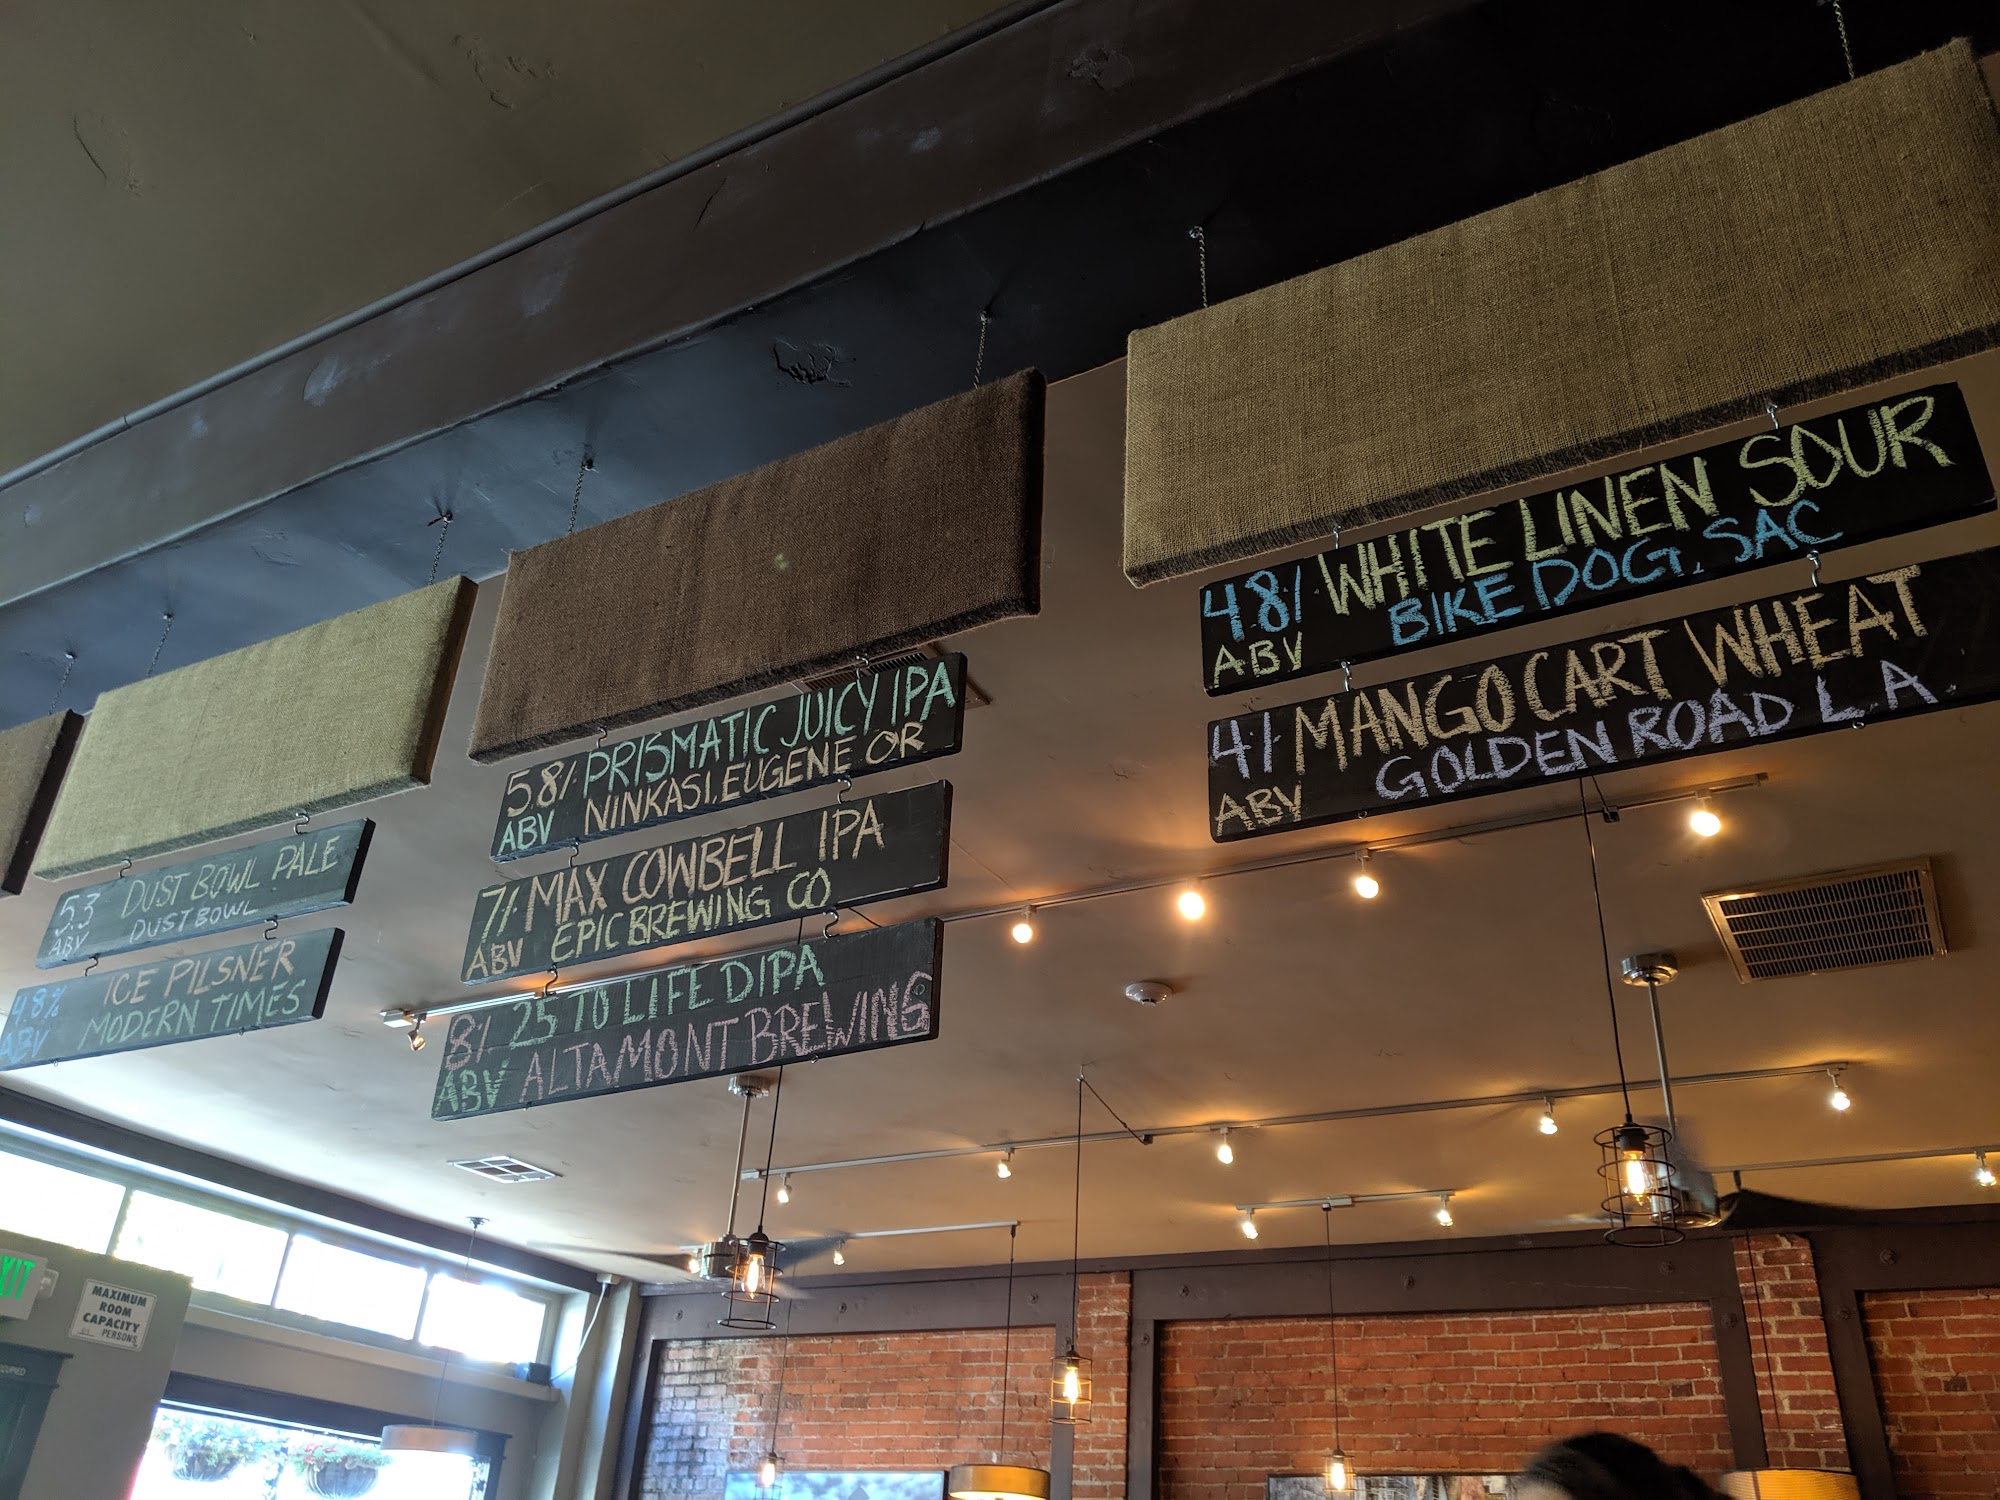 5.3 DUST BOWL PALE
ABV DUST BOWL
4.8% ICE PILSNER
ABV MODERN TIMES
5.8% PRISMATIC JUICY IPA
ABV NINKASI, EUGENE OR
7% MAX COWBELL IPA
ABV EPIC BREWING CO
8% 25 TO LIFE DIPA
ABV ALTAMONT BREWING
4.8% WHITE LINEN SOUR
ABV BIKE DOG, SAC
4% MANGO CART WHEAT
ABV GOLDEN ROAD L.A.
EXIT
MAXIMUM
ROOM
CAPACITY
PERSONS